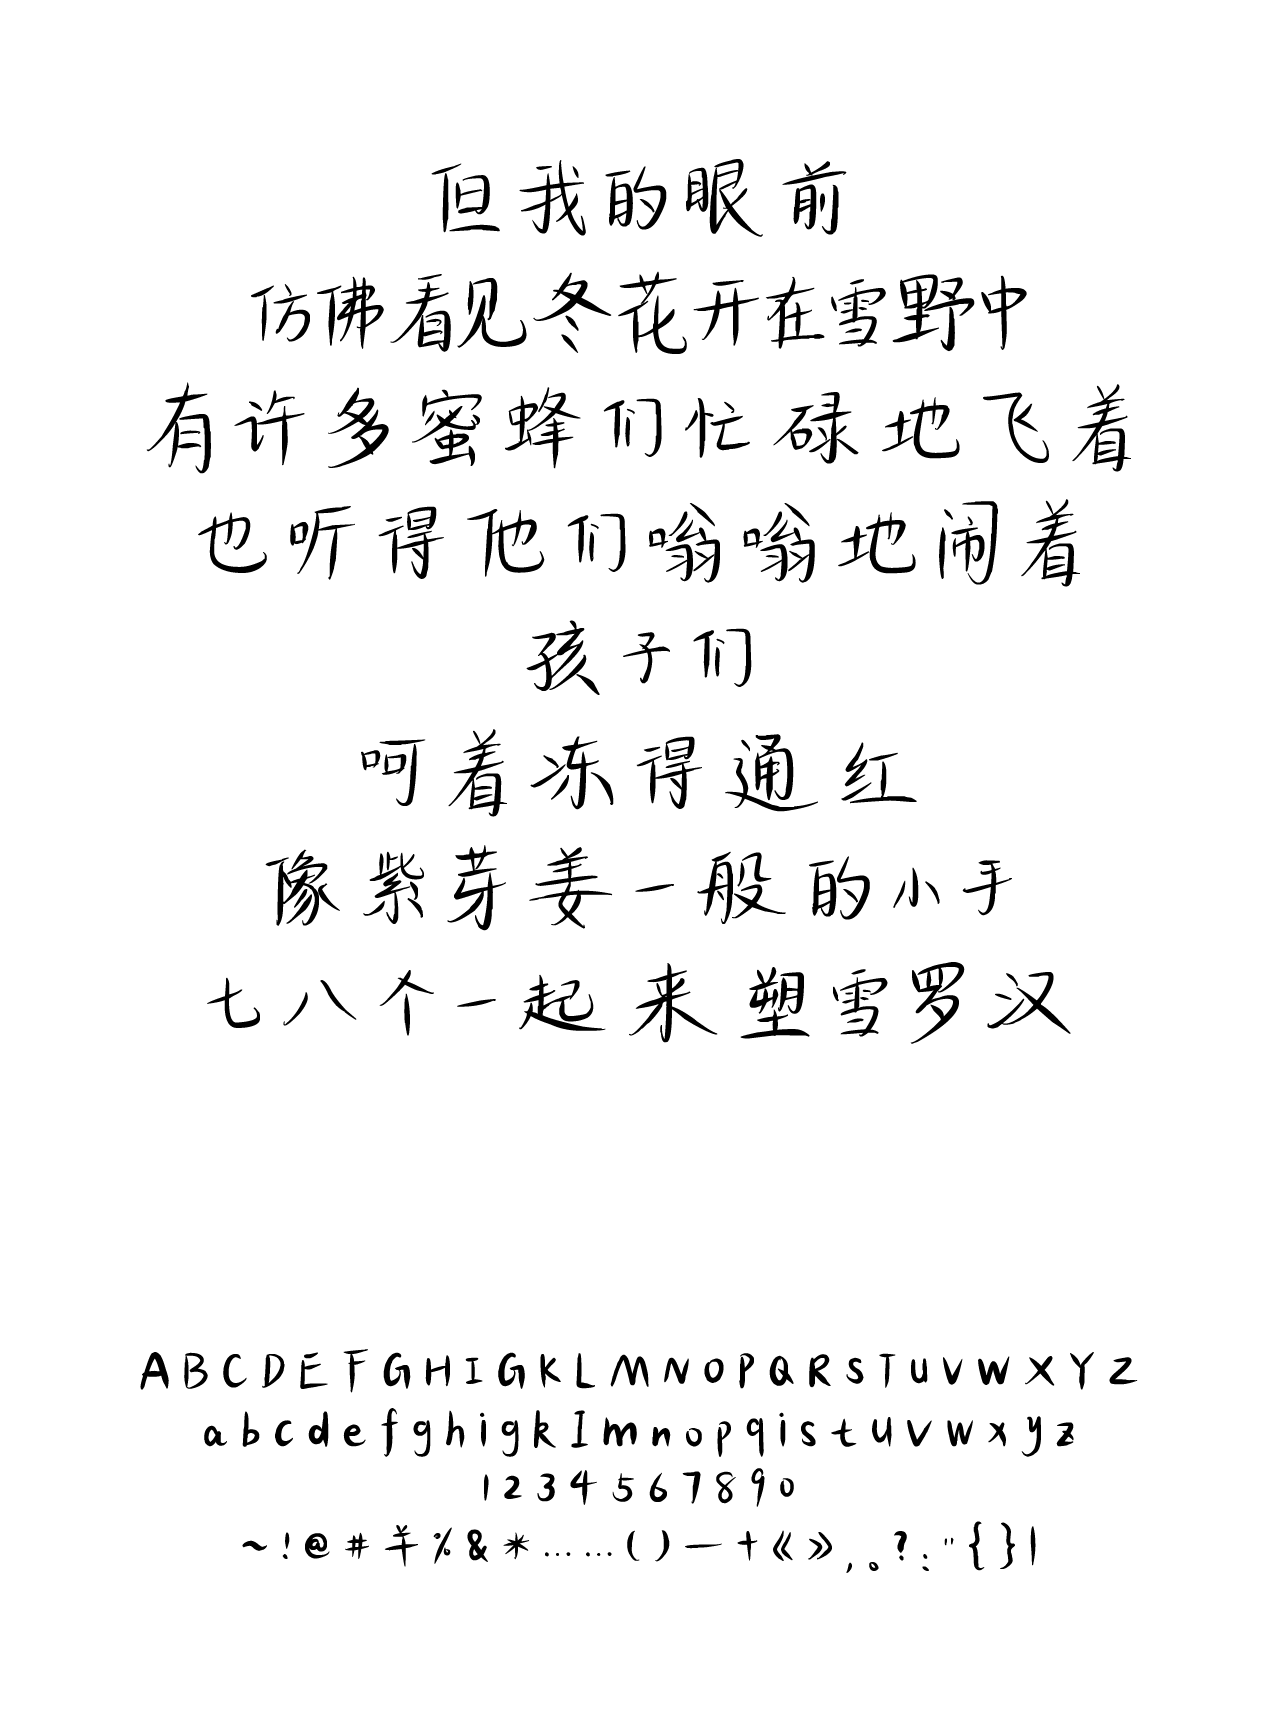 但我的眼前
仿佛看见冬花开在雪野中
有许多蜜蜂们忙碌地飞着
也听得他们嗡嗡地闹着
孩子们
呵着冻得通红
像紫芽姜一般的小手
七八个一起来塑雪罗汉
A B C D E F G H I G K L M N O P Q R S T U V W X Y Z
a b c d e f g h i g k I m n o p q i s t u v w x y z
1 2 3 4 5 6 7 8 9 0
~ ! @ # ¥ % & * … … ( ) — + 《 》 , 。 ? : " { } |